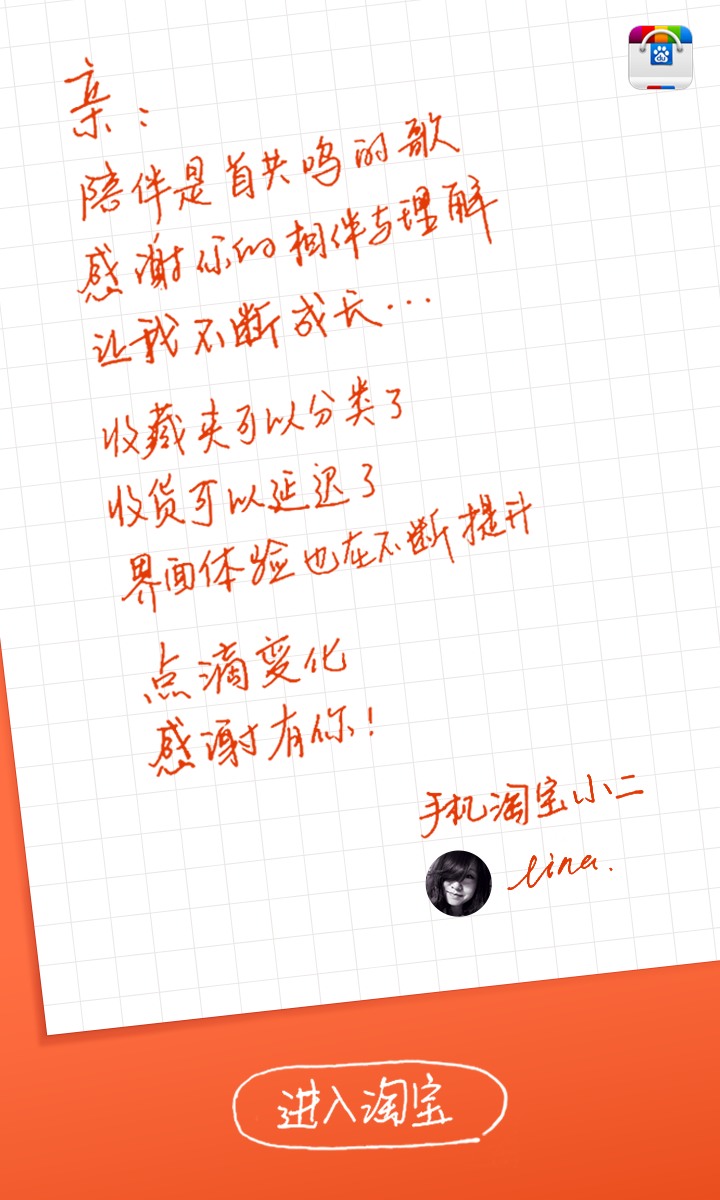 亲：
陪伴是首共鸣的歌
感谢你的相伴与理解
让我不断成长...
收藏夹可以分类了
收货可以延迟了
界面体验也在不断提升
点滴变化
感谢有你！
手机淘宝小二
lina.
进入淘宝